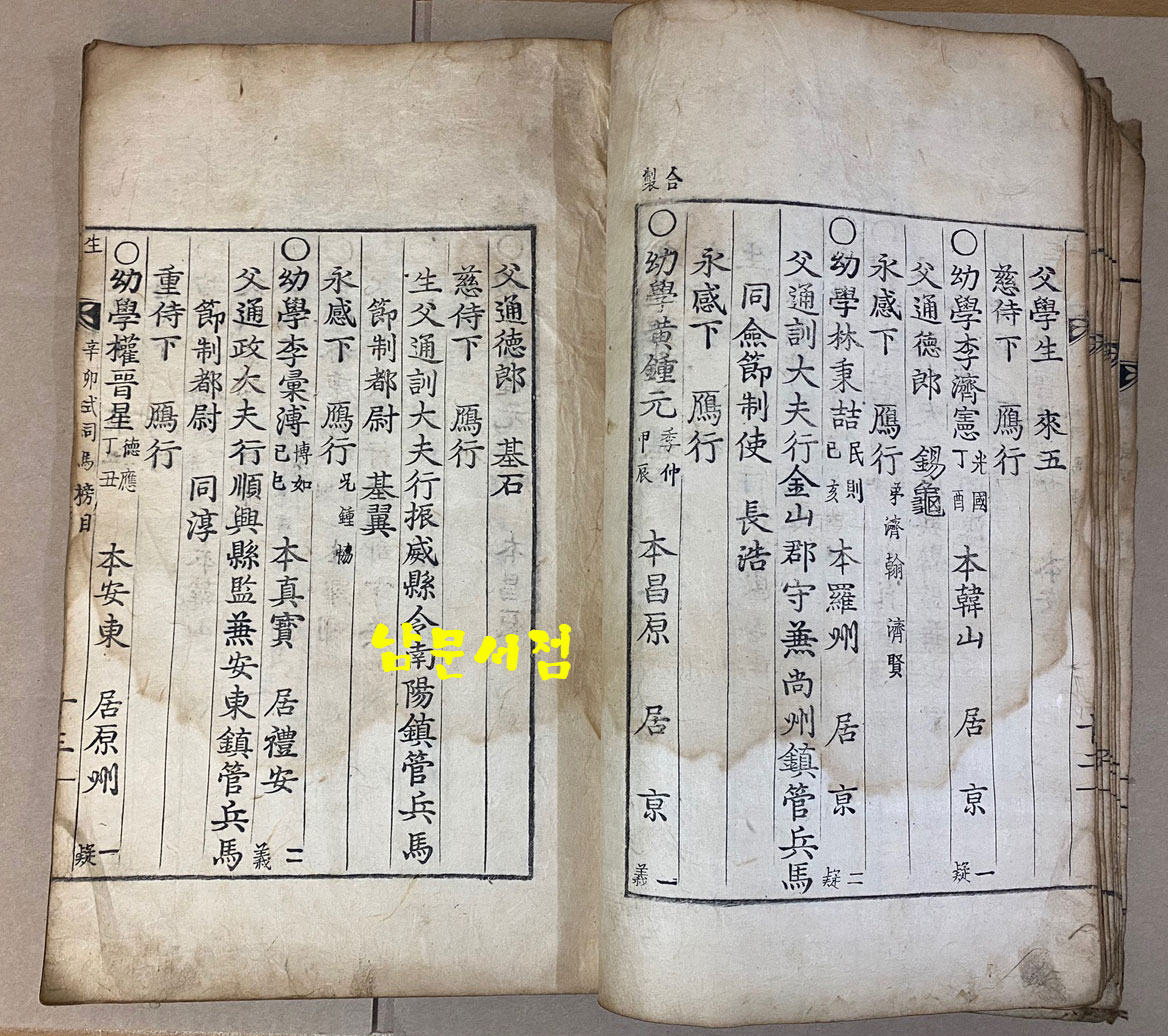 父學生 來五
慈侍下 鴈行
〇幼學李濟憲 光國 丁酉 本韓山 居京 一疑
父通德郎 錫龜
永感下 鴈行 弟濟翰 濟賢
〇幼學林秉喆 民則 己亥 本羅州 居京 二疑
父通訓大夫行金山郡守兼尚州鎮管兵馬
同僉節制使 長浩
永感下 鴈行
合製
〇幼學黃鍾元 季仲 甲辰 本昌原 居京 一義
父通德郎 基石
慈侍下 鴈行
生父通訓大夫行振威縣令南陽鎮管兵馬
節制都尉 基翼
永感下 鴈行 兄鍾
〇幼學李彙溥 博如 己巳 本真寶 居禮安 二義
父通政大夫行順興縣監兼安東鎮管兵馬
節制都尉 同淳
重侍下 鴈行
〇幼學權晉星 德應 丁丑 本安東 居原州 一疑
生 辛卯式司馬榜目 十三
十二
남문서점